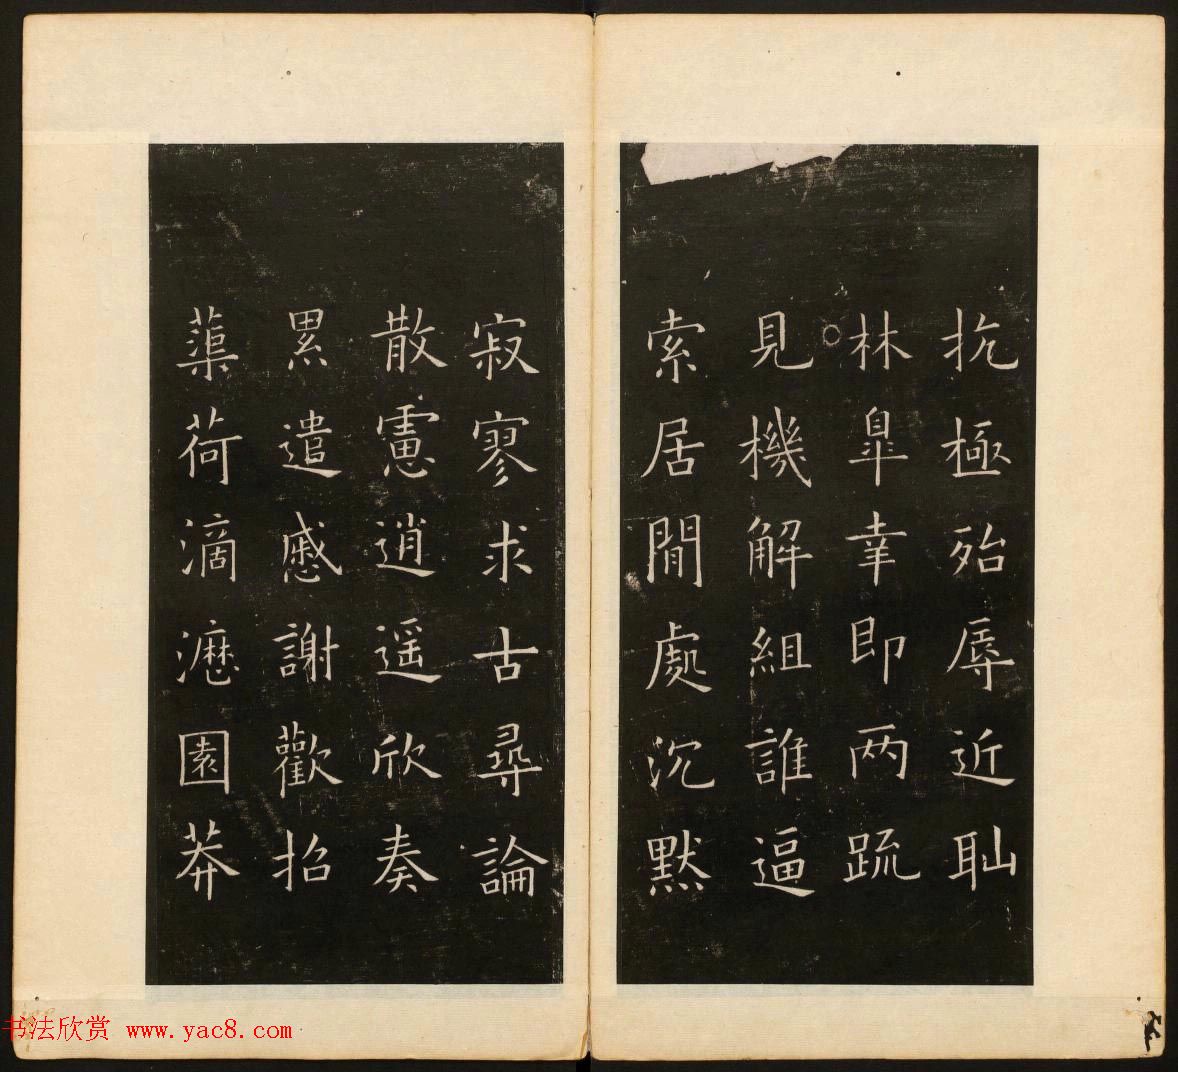 抗極殆辱近耻
林皋幸即两疏
見機解組誰逼
索居閒處沉默
寂寥求古尋論
散慮逍遥欣奏
累遣慼謝歡招
蕖荷滴瀝園莽
书法欣赏 www.yac8.com